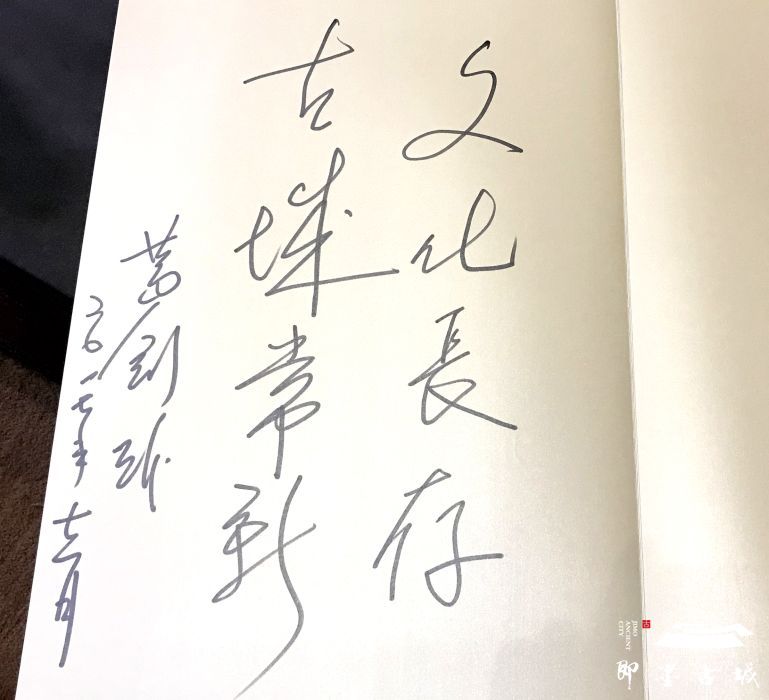 文化長存
古城常新
葛剑雄
二〇一七年十二月
古
JIMO
ANCIENT
CITY
即墨古城